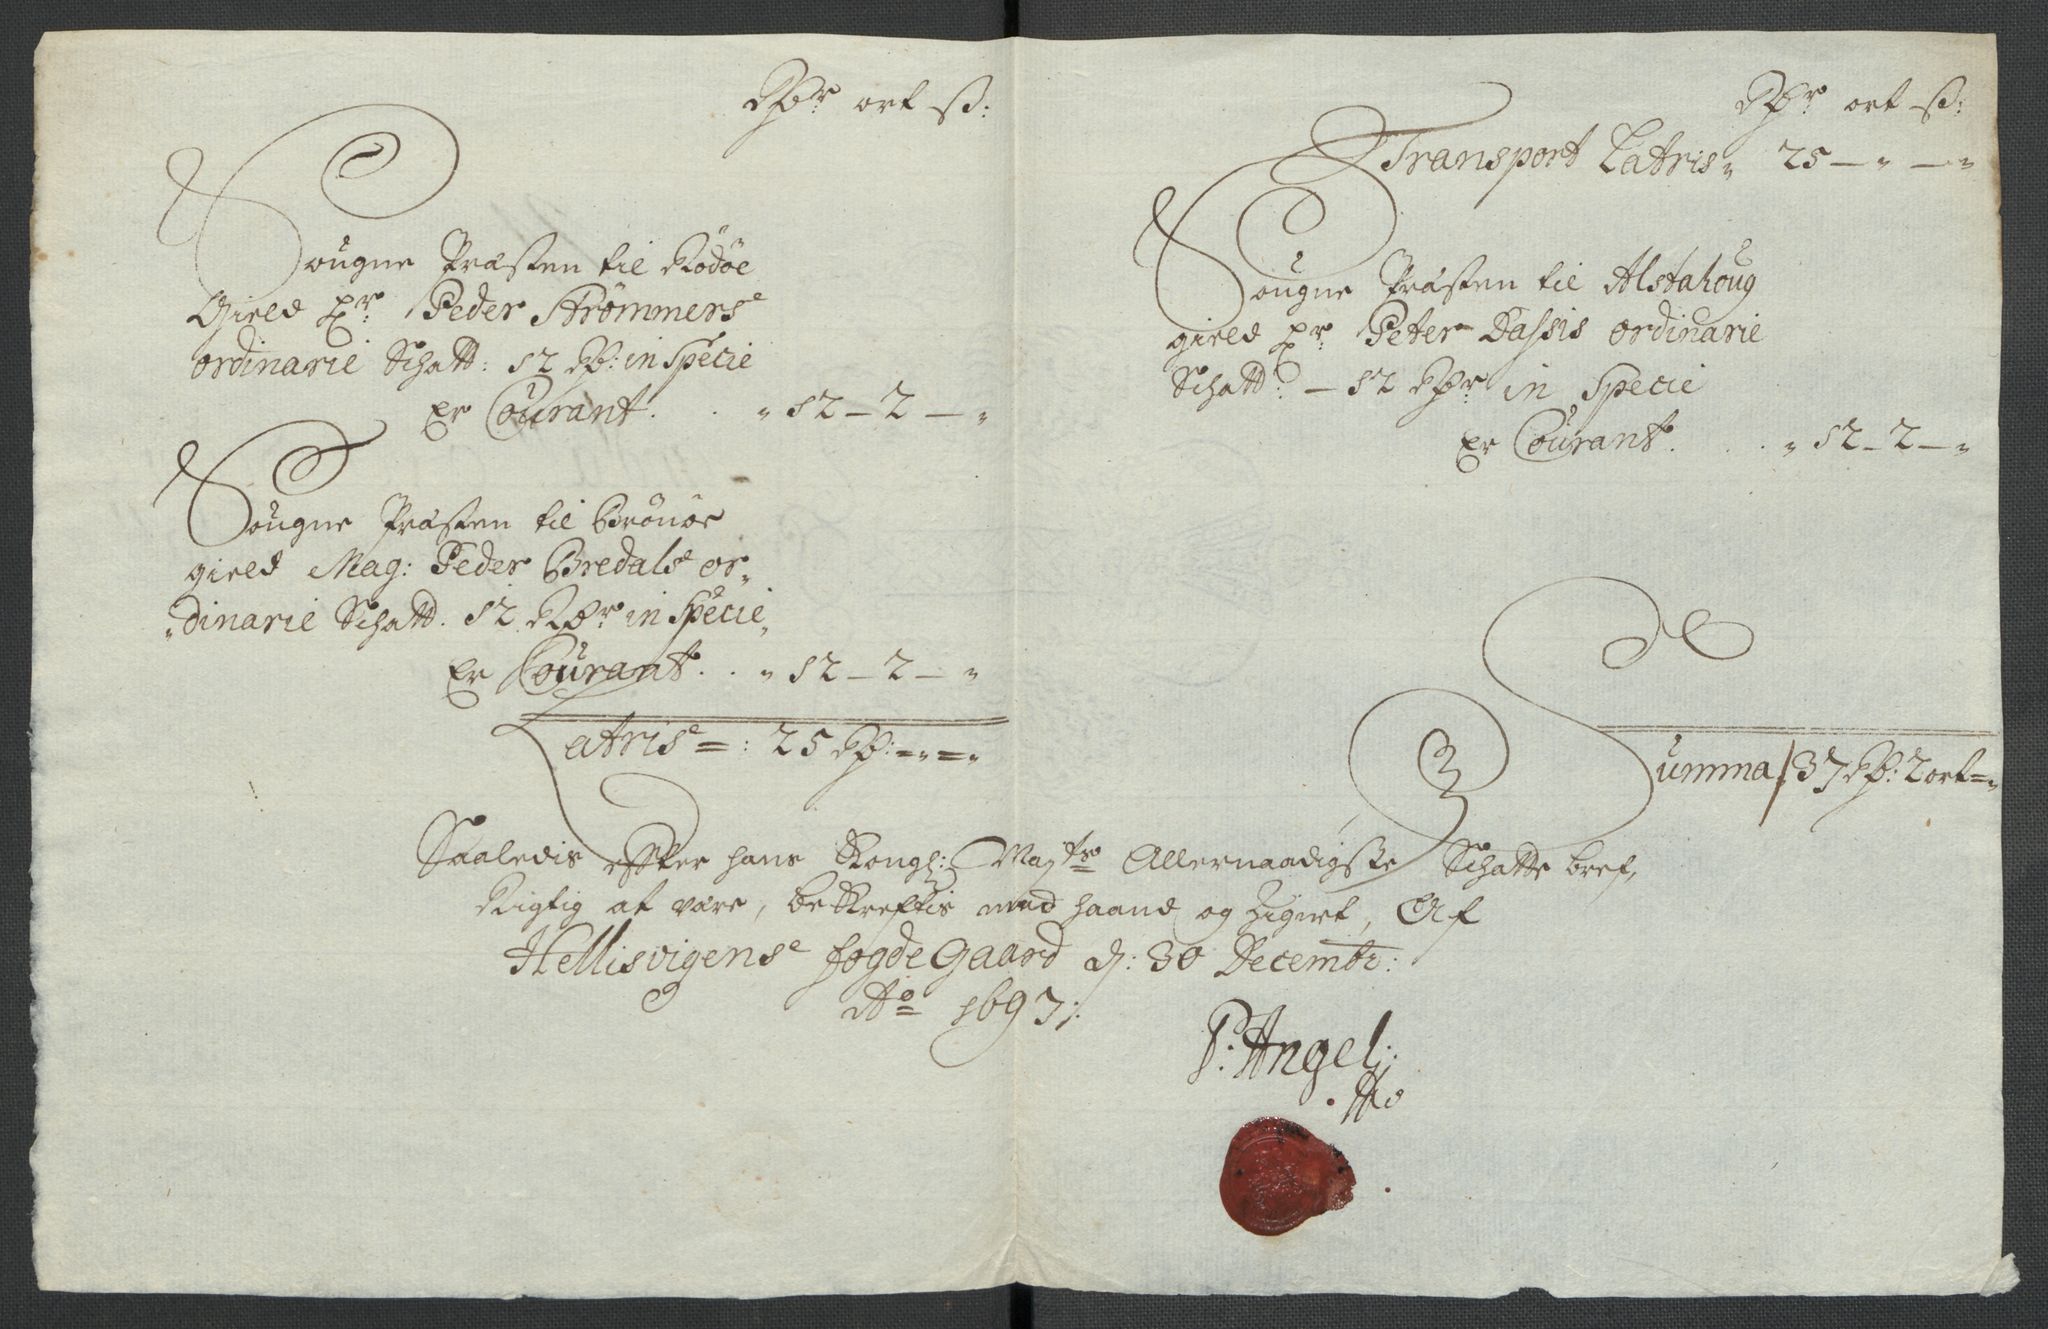 Rdr ort ß:
Sougne Præsten til Rödöe
Gield hr: Peder Strömmerse
ordinarie Schatt: 12 Rd: in Specie
er Courant . . „ 12 – 2 – „
Sougne Præsten til Brönöe
gield Mag: Peder Bredalse or„
„dinarie Schatt. 12 Rdr in Specie„
er Courant . . „ 12 – 2 – „
Latrise =: 25 Rd: = „ = „
Rdr ort ß:
Transport Latris„ 25 – „ – „
Sougne Præsten til Alstahoug
gield hr: Peter Dassis ordinarie
Schatt: – 12 Rdr in Specie
er Courant . . . „ 12 – 2 – „
Summa / 37 Rd: 2 ort = „
Saaledis effter hans Kongl: Mayts Allernaadigste Schatte bref,
Rigtig at være, bekreftis med haand og Zignet, Af
Hellisvigense fogde Gaard d: 30 Decembr:
Ao 1697:
P: Angel: